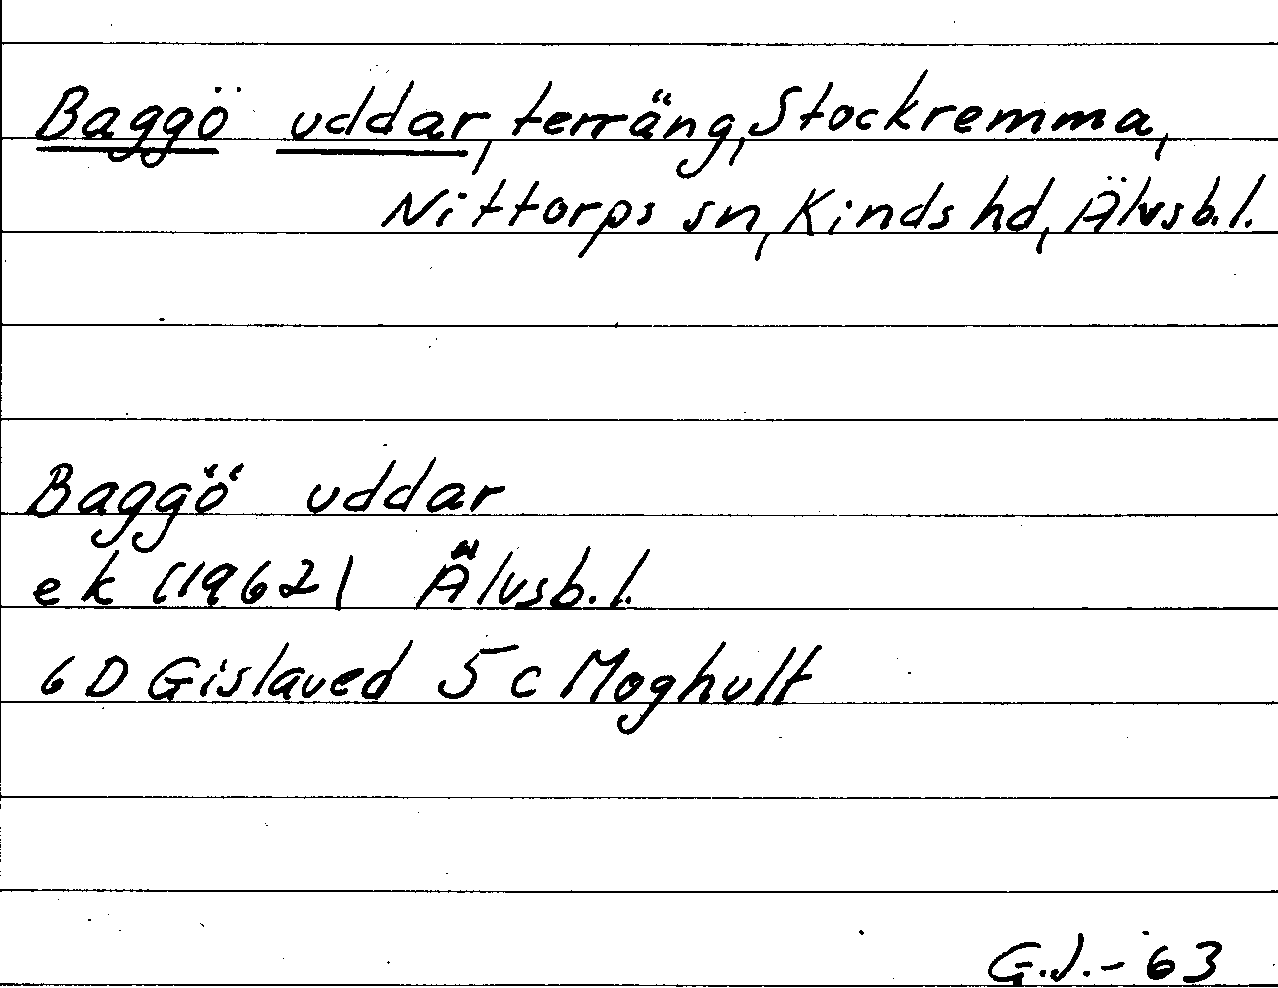 Baggö uddar, terräng, Stockremma,
Nittorps sn, Kinds hd, Älvsb.l.
Baggö uddar
ek (1962) Älvsb.l.
6D Gislaved 5c Moghult
G.J.-63